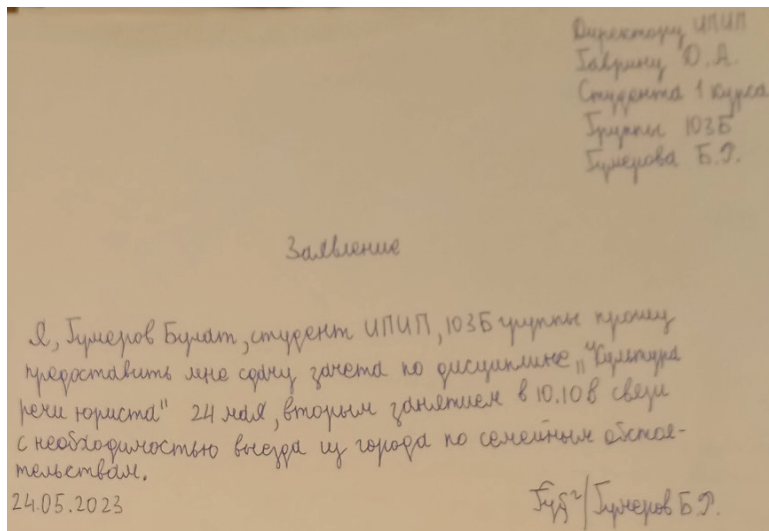 Директору ИПИП
Гаврину Д.А.
Студента 1 курса
Группы 103Б
Гумерова Б.Р.
Заявление
Я, Гумеров Булат, студент ИПИП, 103Б группы прошу
предоставить мне сдачу зачета по дисциплине „Культура
речи юриста" 24 мая, вторым занятием в 10.10 в связи
с необходимостью выезда из города по семейным обстоя-
тельствам.
24.05.2023
/Гумеров Б.Р.